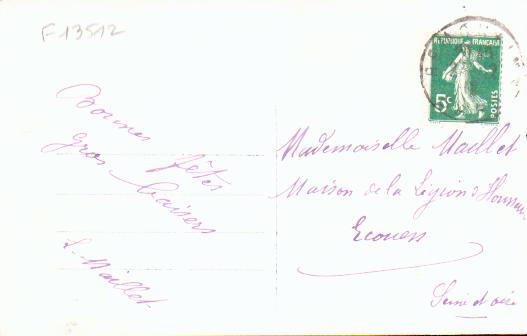 F 13512
RÉPUBLIQUE FRANÇAISE
5c
POSTES
Bonnes fêtes
gros baisers
L. Maillet
Mademoiselle Maillet
Maison de la Légion d'Honneur
Ecouen
Seine et oise